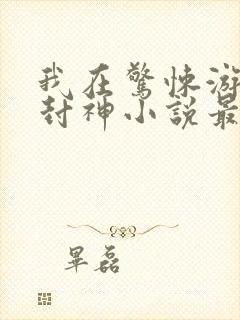 我在驚悚游
封神小說最
畢磊